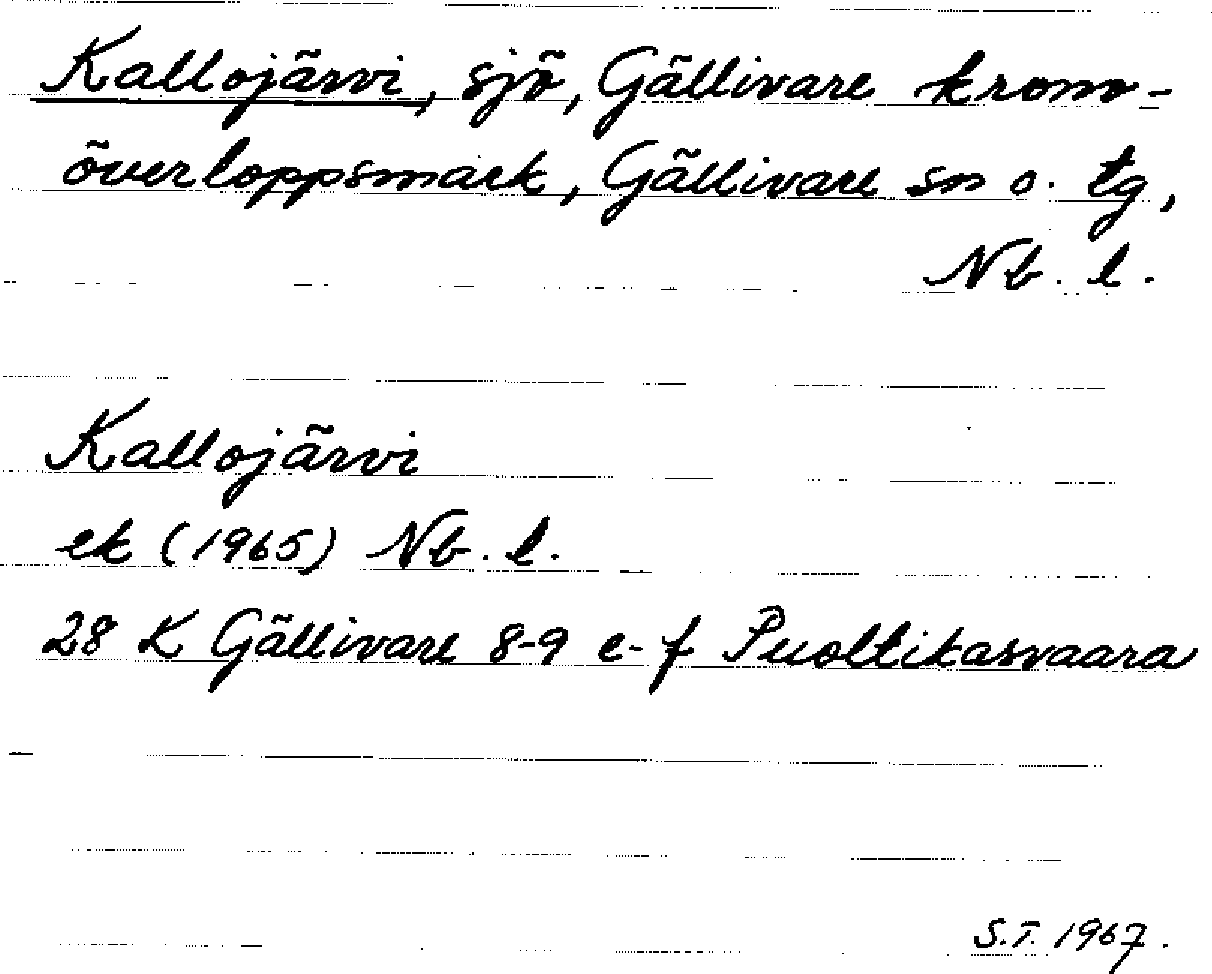 Kallojärvi, sjö, Gällivare krono-
överloppsmark, Gällivare sn o. tg,
Nb. l.
Kallojärvi
ek (1965) Nb. l.
28 K Gällivare 8-9 e-f Puoltikasvaara
S.T. 1967.